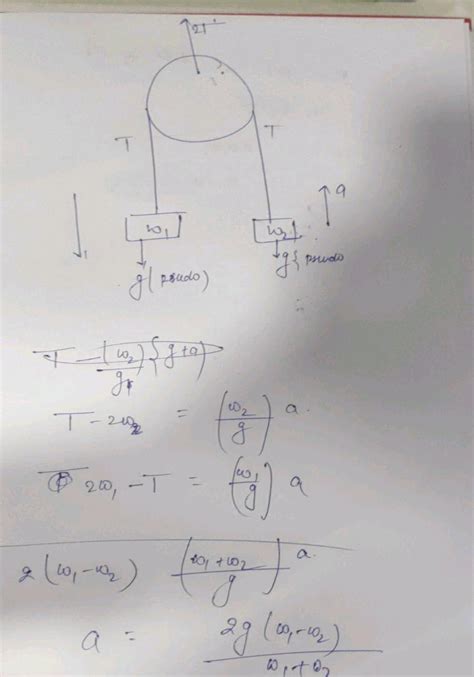 2T
T T
a
w₁ w₂
g (pseudo) g { pseudo
T - (w₂)/g {g+a)
T - 2w₂ = (w₂/g) a.
2w₁ - T = (w₁/g) a
2(w₁-w₂) (w₁+w₂/g) a.
a = 2g(w₁-w₂)/w₁+w₂